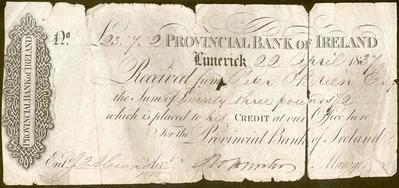 PROVINCIAL BANK OF IRELAND
No £23.7.2 PROVINCIAL BANK OF IRELAND
Limerick 22 April 1837
Received from Peter O'Brien Esq
the Sum of Twenty three pounds 7/2
which is placed to his CREDIT at our Office here
For the Provincial Bank of Ireland
Entd Manager